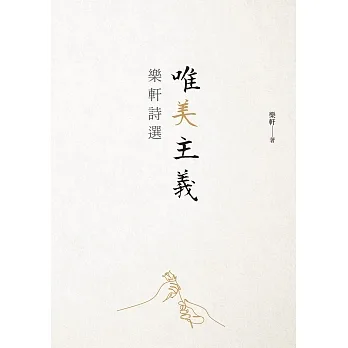 樂軒—著
唯美主義
樂軒詩選